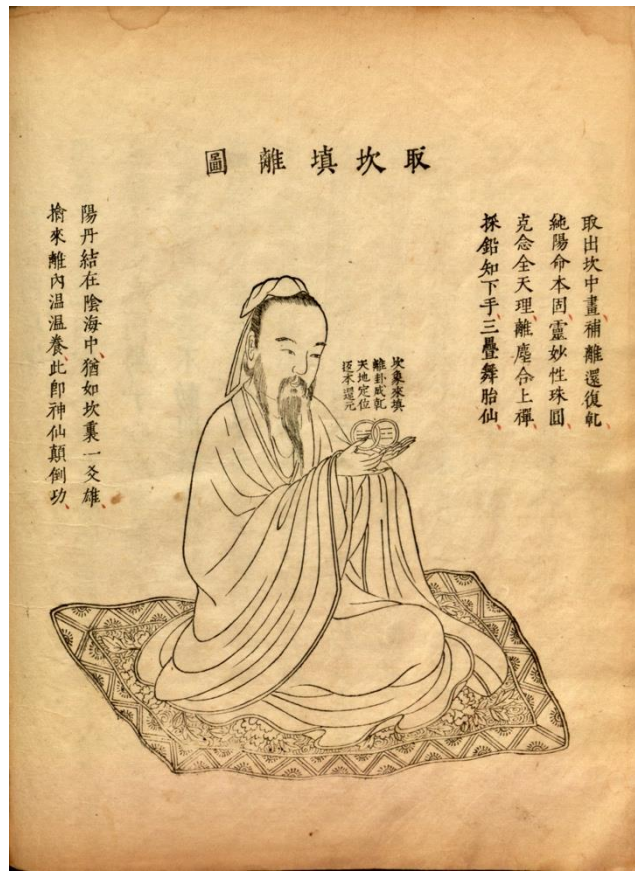 取坎填離圖
取出坎中畫、補離還復乾、
純陽命本固、靈妙性珠圓、
克念全天理、離塵合上禪、
採鉛知下手、三疊舞胎仙、
坎象來填
離卦成乾
天地定位
返本還元
陽丹結在陰海中、猶如坎裏一爻雄、
擒來離內溫溫養、此即神仙顛倒功、